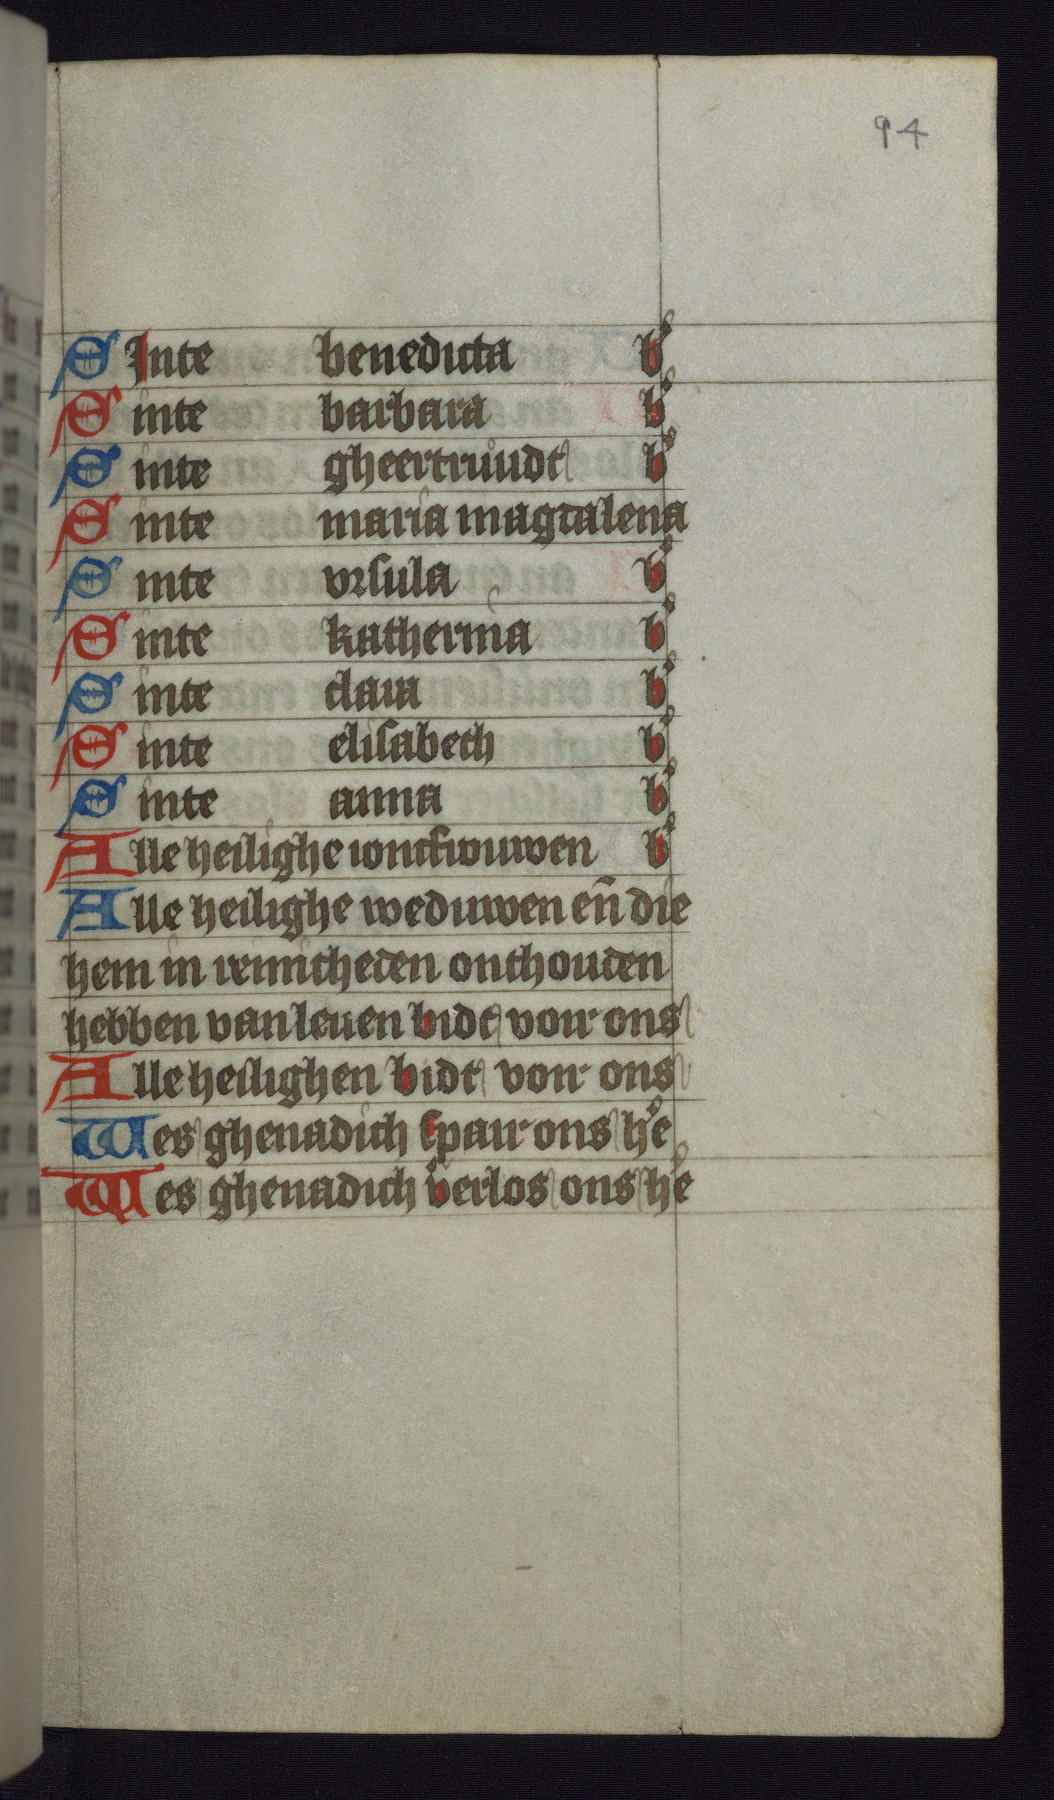 94
SInte benedicta b
Sinte barbara b
Sinte gheertruudt b
Sinte maria magdalena
Sinte vrsula b
Sinte katherina b
Sinte clara b
Sinte elisabeth b
Sinte anna b
Alle heilighe ioncfrouwen b
Alle heilighe weduwen eñ die
hem in reinicheden onthouden
hebben van leuen bidt voir ons
Alle heilighen bidt voir ons
Wes ghenadich spair ons he
Wes ghenadich verlos ons he